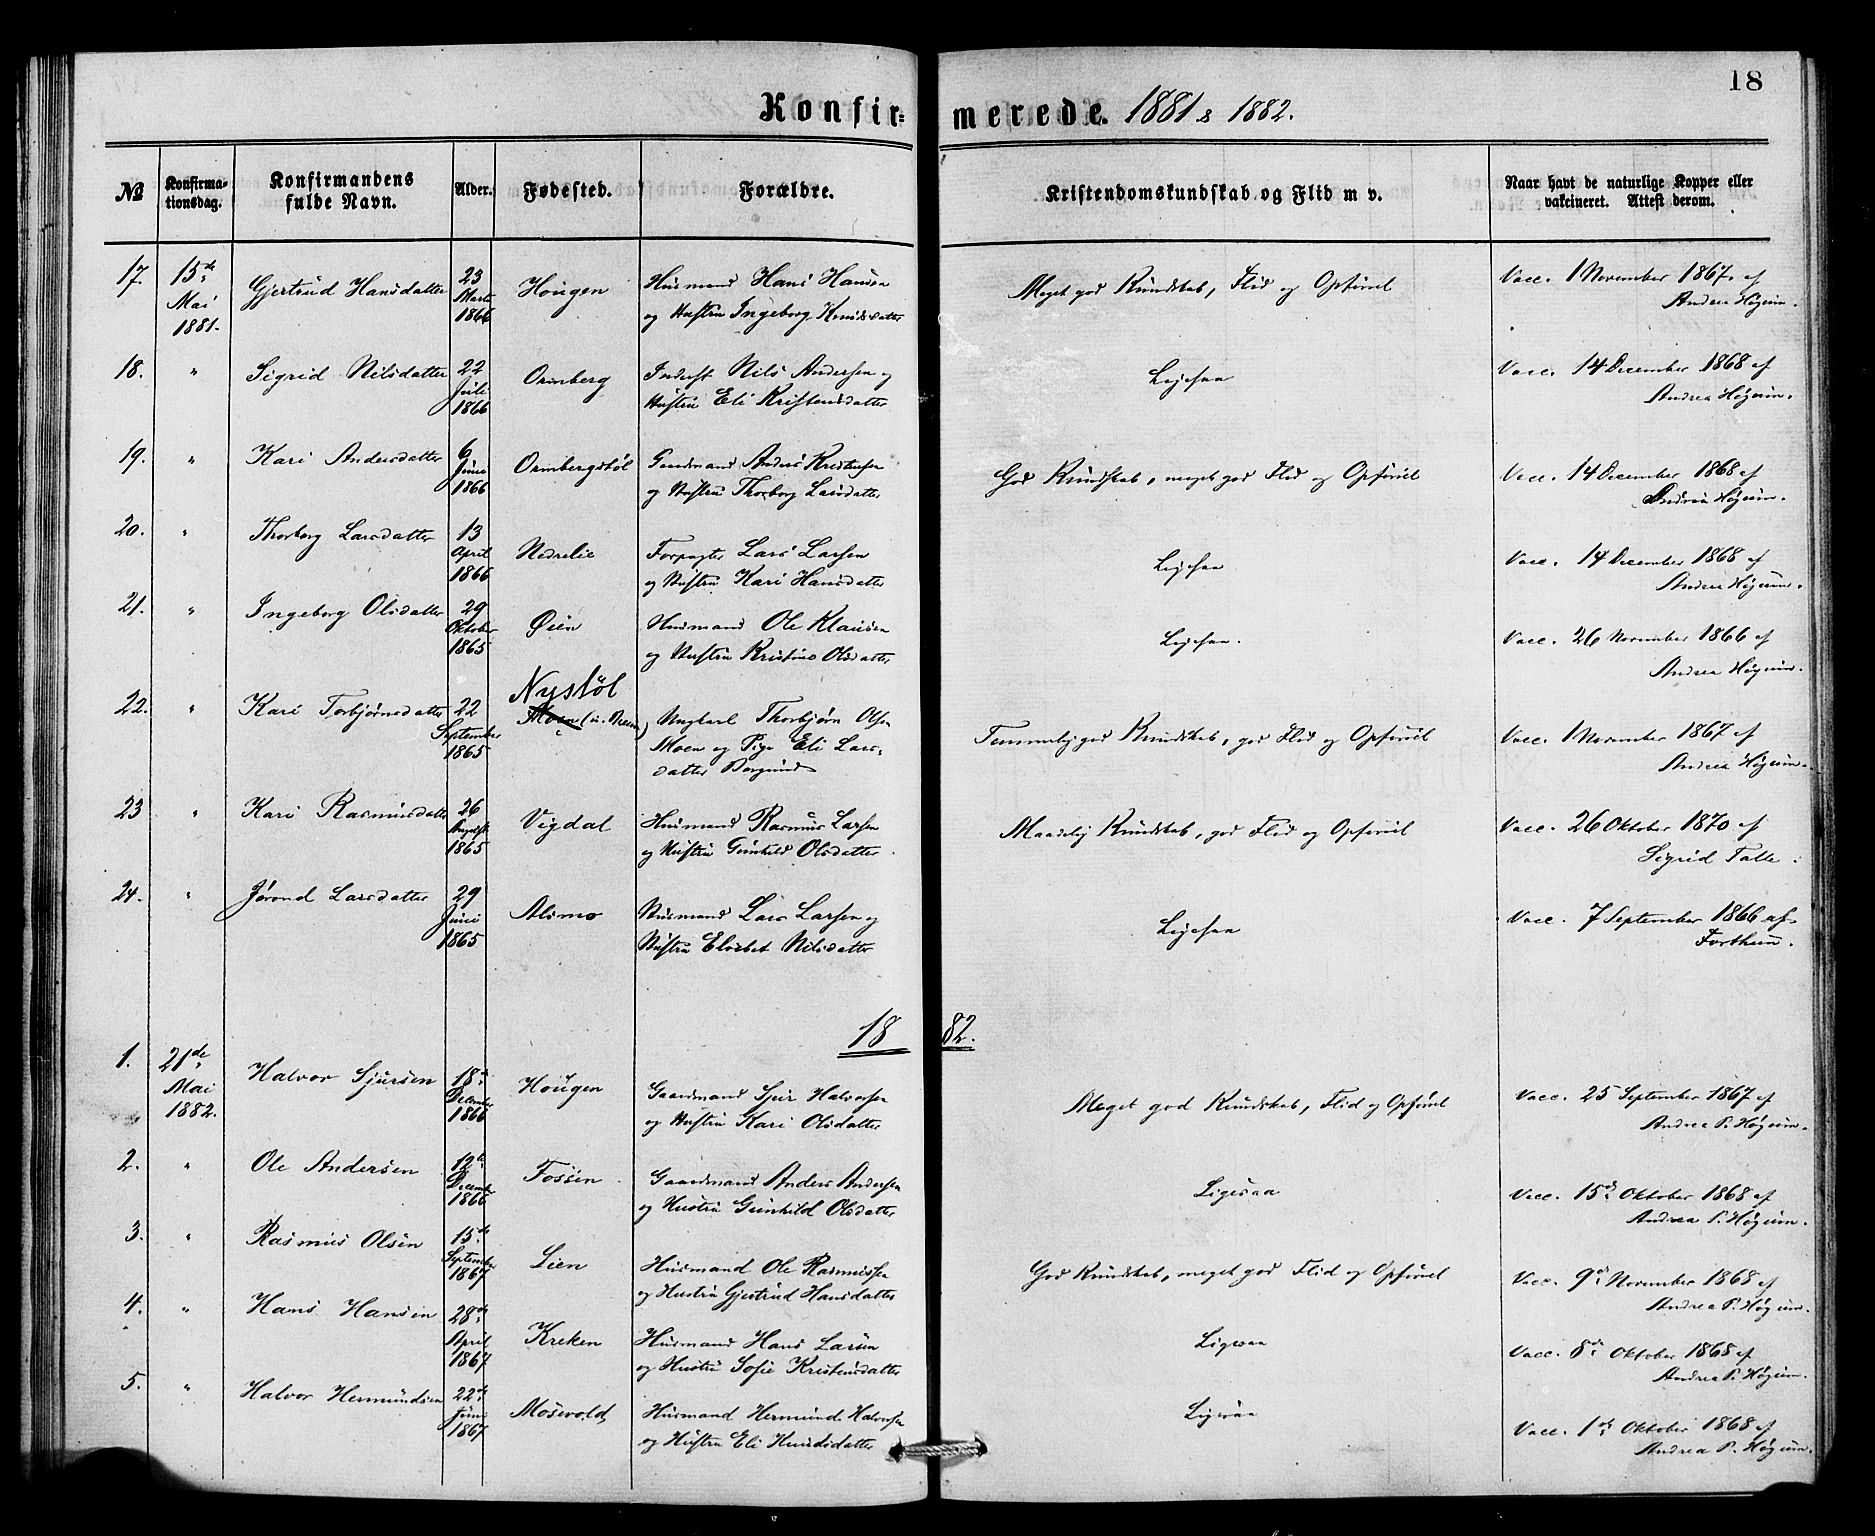 18
Konfirmerede. 1881 & 1882.
№ Konfirmationsdag. Konfirmandens fulde Navn. Alder. Fødested. Forældre. Kristendomskundskab og Flid m v. Naar havt de naturlige Kopper eller vakcineret. Attest derom.
17. 15de Mai 1881. Gjertrud Hansdatter 23 Marts 1866 Hougen Husmand Hans Hansen og Hustru Ingeborg Knudsdatter Meget god Kundskab, Flid og Opførsel Vacc. 1 November 1867 af Andrea Høgum.
18. " Sigrid Nilsdatter 22 Juli 1866 Ormberg Inderst Nils Andersen og Hustru Eli Kristensdatter Ligesaa Vacc. 14 December 1868 af Andrea Høgum.
19. " Kari Andersdatter 6 Juni 1866 Ormbergstøl Gaardmand Anders Kristensen og Hustru Thorborg Larsdatter God Kundskab, meget god Flid og Opførsel Vacc. 14 December 1868 af Andrea Høgum.
20. " Thorborg Larsdatter 13 April 1866 Nedrelie Forpagter Lars Larsen og Hustru Kari Hansdatter Ligesaa Vacc. 14 December 1868 af Andrea Høgum.
21. " Ingeborg Olsdatter 29 Oktober 1865 Øien Husmand Ole Klausen og Hustru Kristine Olsdatter Ligesaa. Vacc. 26 November 1866 af Andrea Høgum.
22. " Kari Torbjørnsdatter 22 September 1865 Nystøl Moen Ungkarl Thorbjørn Olsen Moen og Pige Eli Larsdatter Borgund Temmelig god Kundskab, god Flid og Opførsel Vacc. 1 November 1867 af Andrea Høgum.
23 " Kari Rasmusdatter 26 August 1865 Vigdal Husmand Rasmus Larsen og Hustru Gunhild Olsdatter Maadelig Kundskab, god Flid og Opførsel Vacc. 26 Oktober 1870 af Sigrid Talle.
24. " Jørond Larsdatter 29 Juni 1865 Alsmo Husmand Lars Larsen og Hustru Elsebet Nilsdatter Ligesaa Vacc. 7 September 1866 af Forthun.
1882.
1. 21de Mai 1882. Halvor Sjursen 18de December 1866 Hougen Gaardmand Sjur Halvorsen og Hustru Kari Olsdatter Meget god Kundskab, Flid og Opførsel Vacc. 25 September 1867 af Andrea P. Høgum.
2. " Ole Andersen 12te December 1866 Fossen Gaardmand Anders Andersen og Hustru Gunhild Olsdatter Ligesaa Vacc. 15de Oktober 1868 af Andrea P. Høgum.
3. " Rasmus Olsen 15de September 1867 Lien Husmand Ole Rasmussen og Hustru Gjertrud Hansdatter God Kundskab, meget god Flid og Opførsel Vacc. 9de November 1868 af Andrea P. Høgum.
4. " Hans Hansen 28de April 1867 Kreken Husmand Hans Larsen og Hustru Sofie Kristensdatter Ligesaa Vacc. 8de Oktober 1868 af Andrea P. Høgum.
5. " Halvor Hermundsen 22de Juni 1867 Mosevold Husmand Hermund Halvorsen og Hustru Eli Knudsdatter Ligesaa Vacc. 1ste Oktober 1868 af Andrea P. Høgum.